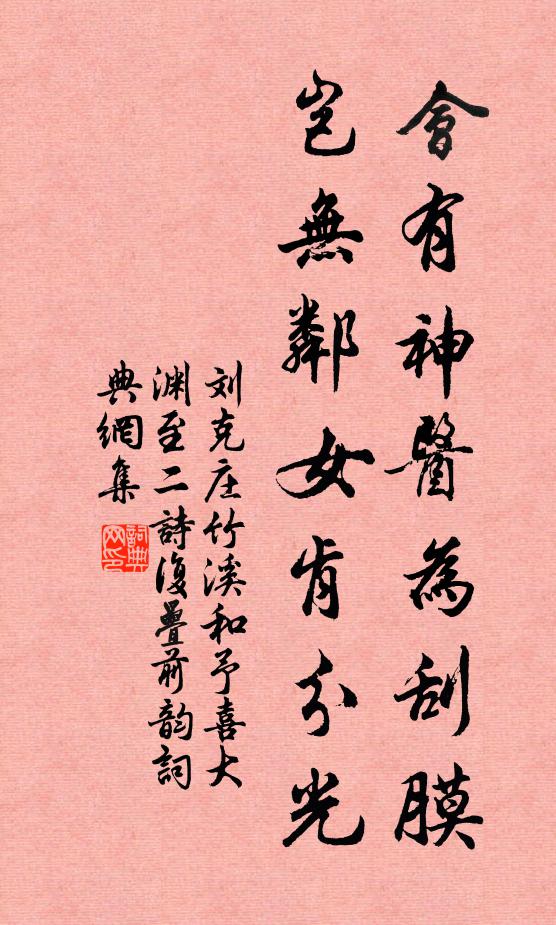 會有神醫為刮膜
豈無鄰女肯分光
刘克庄竹溪和予喜大
渊至二詩復疊前韵詞
典網集
詞典
网印